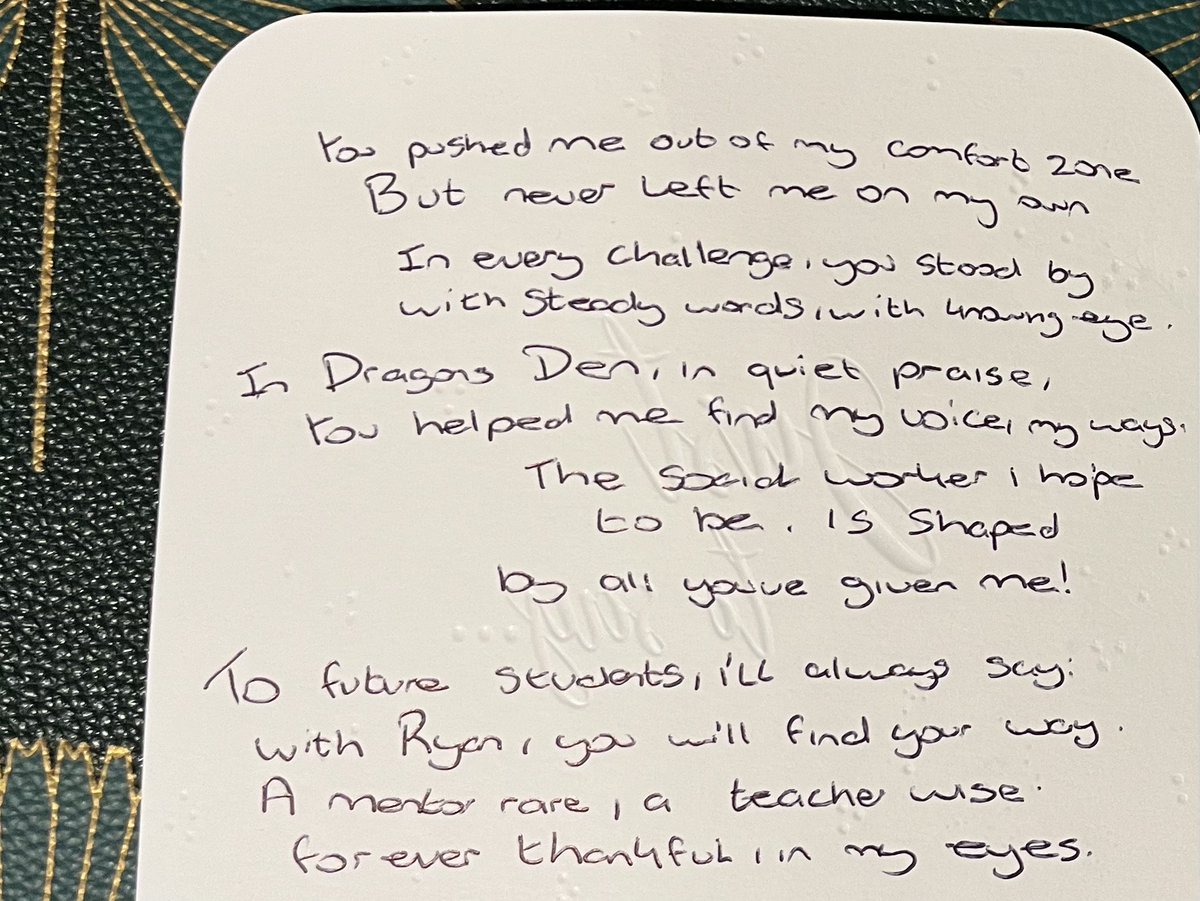 You pushed me out of my comfort zone
But never left me on my own
In every challenge, you stood by
with steady words, with knowing eye.
In Dragons Den, in quiet praise,
You helped me find my voice, my ways.
The social worker i hope
to be. Is shaped
by all youve given me!
To future students, i'll always say:
with Ryan, you will find your way.
A mentor rare, a teacher wise.
forever thankful, in my eyes.